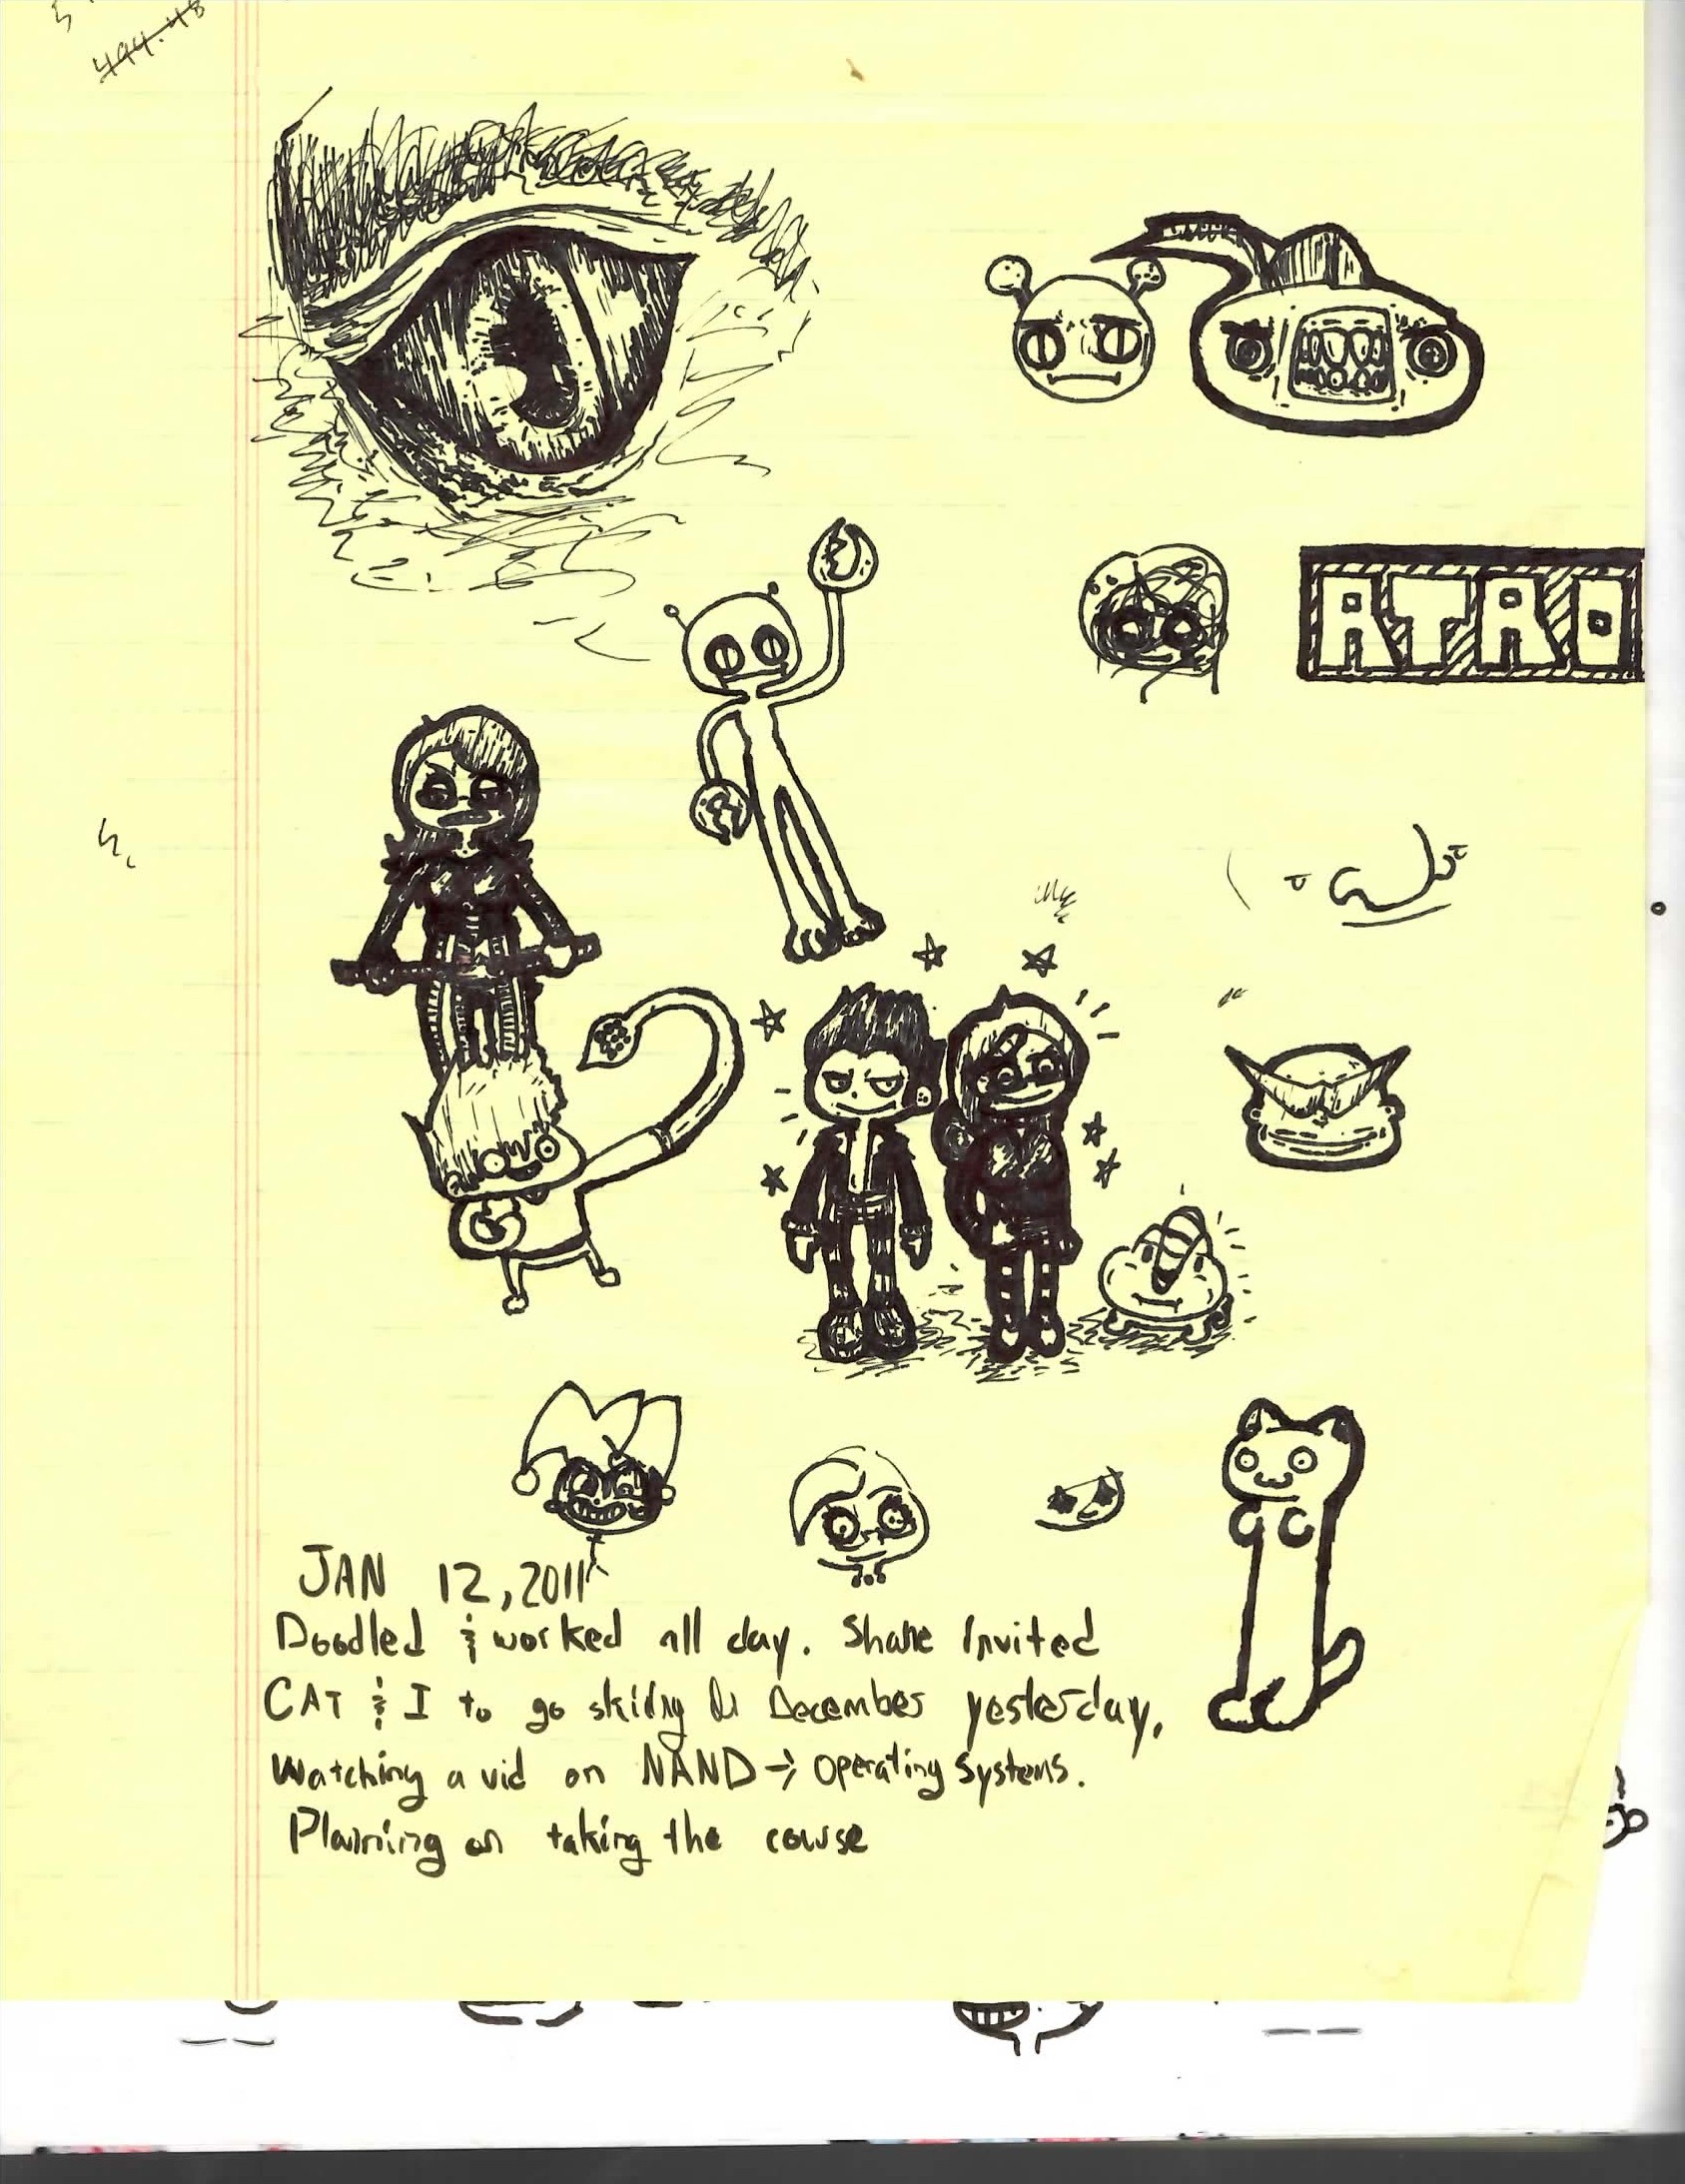 444.48
RTRO
JAN 12, 2011
Doodled & worked all day. Shane Invited
CAT & I to go skiing in December yesterday,
Watching a vid on NAND → Operating Systems.
Planning on taking the course